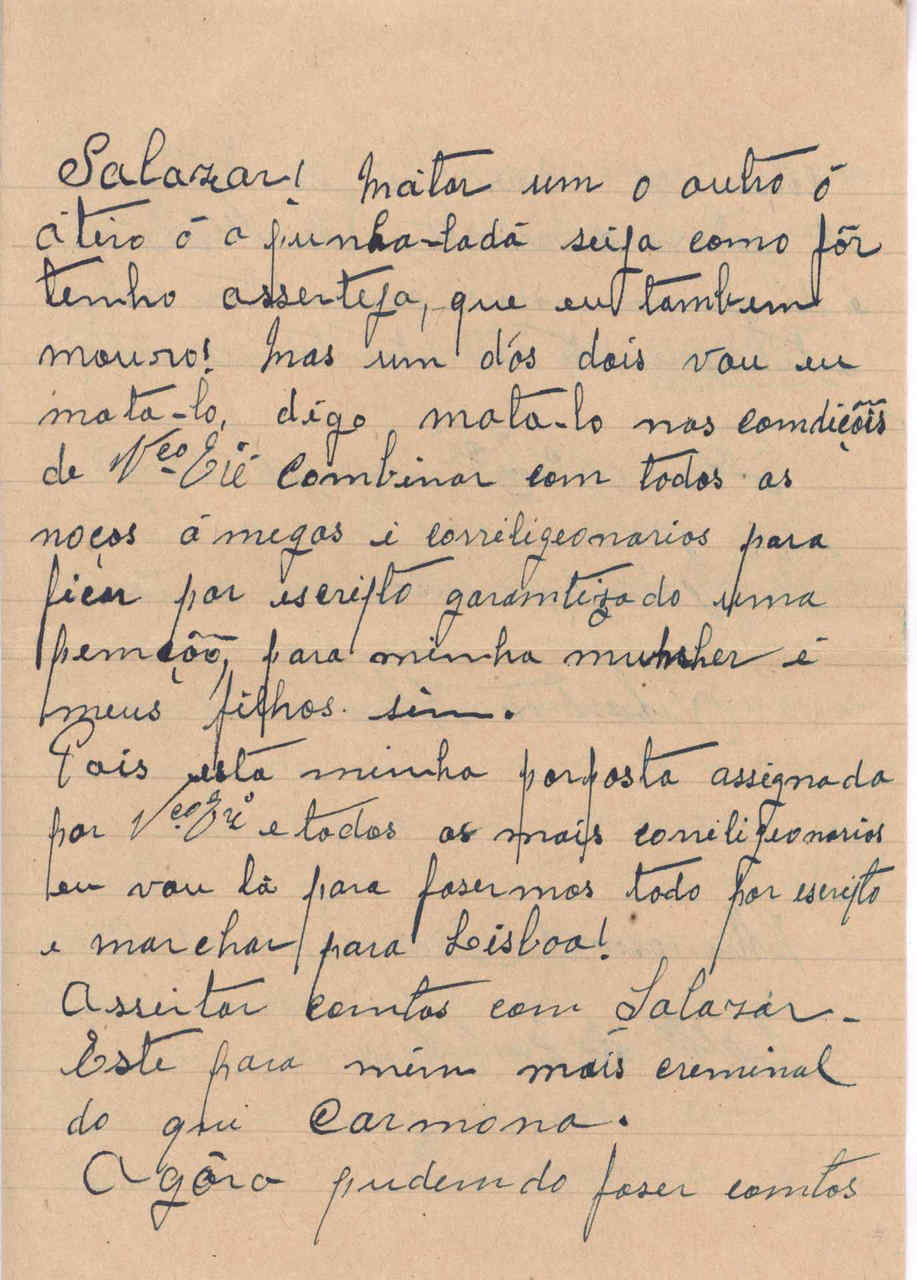 Salazar! Mátar um o outro ó
átiro ó a punha-ladá seija como fôr
tenho asserteja, que eu tambem
mouro! Mas um dós dois vou eu
mata-lo, digo mata-lo nas comdiçõis
de Vcº Exª Combinar com todos os
noços ámegos i correligeonarios para
ficar por escripto garamtizado uma
pemção, para minha mulher é
meus filhos. sim.
Pois esta minha porposta assignada
por Vcº Exª e todos os mais correligeonarios
eu vou lá para fasermos todo por escripto
e marchar para Lisboa!
Asseitar comtos com Salazar -
Este para mim mais creminal
do qui Carmona.
Agôra pudemdo faser comtos